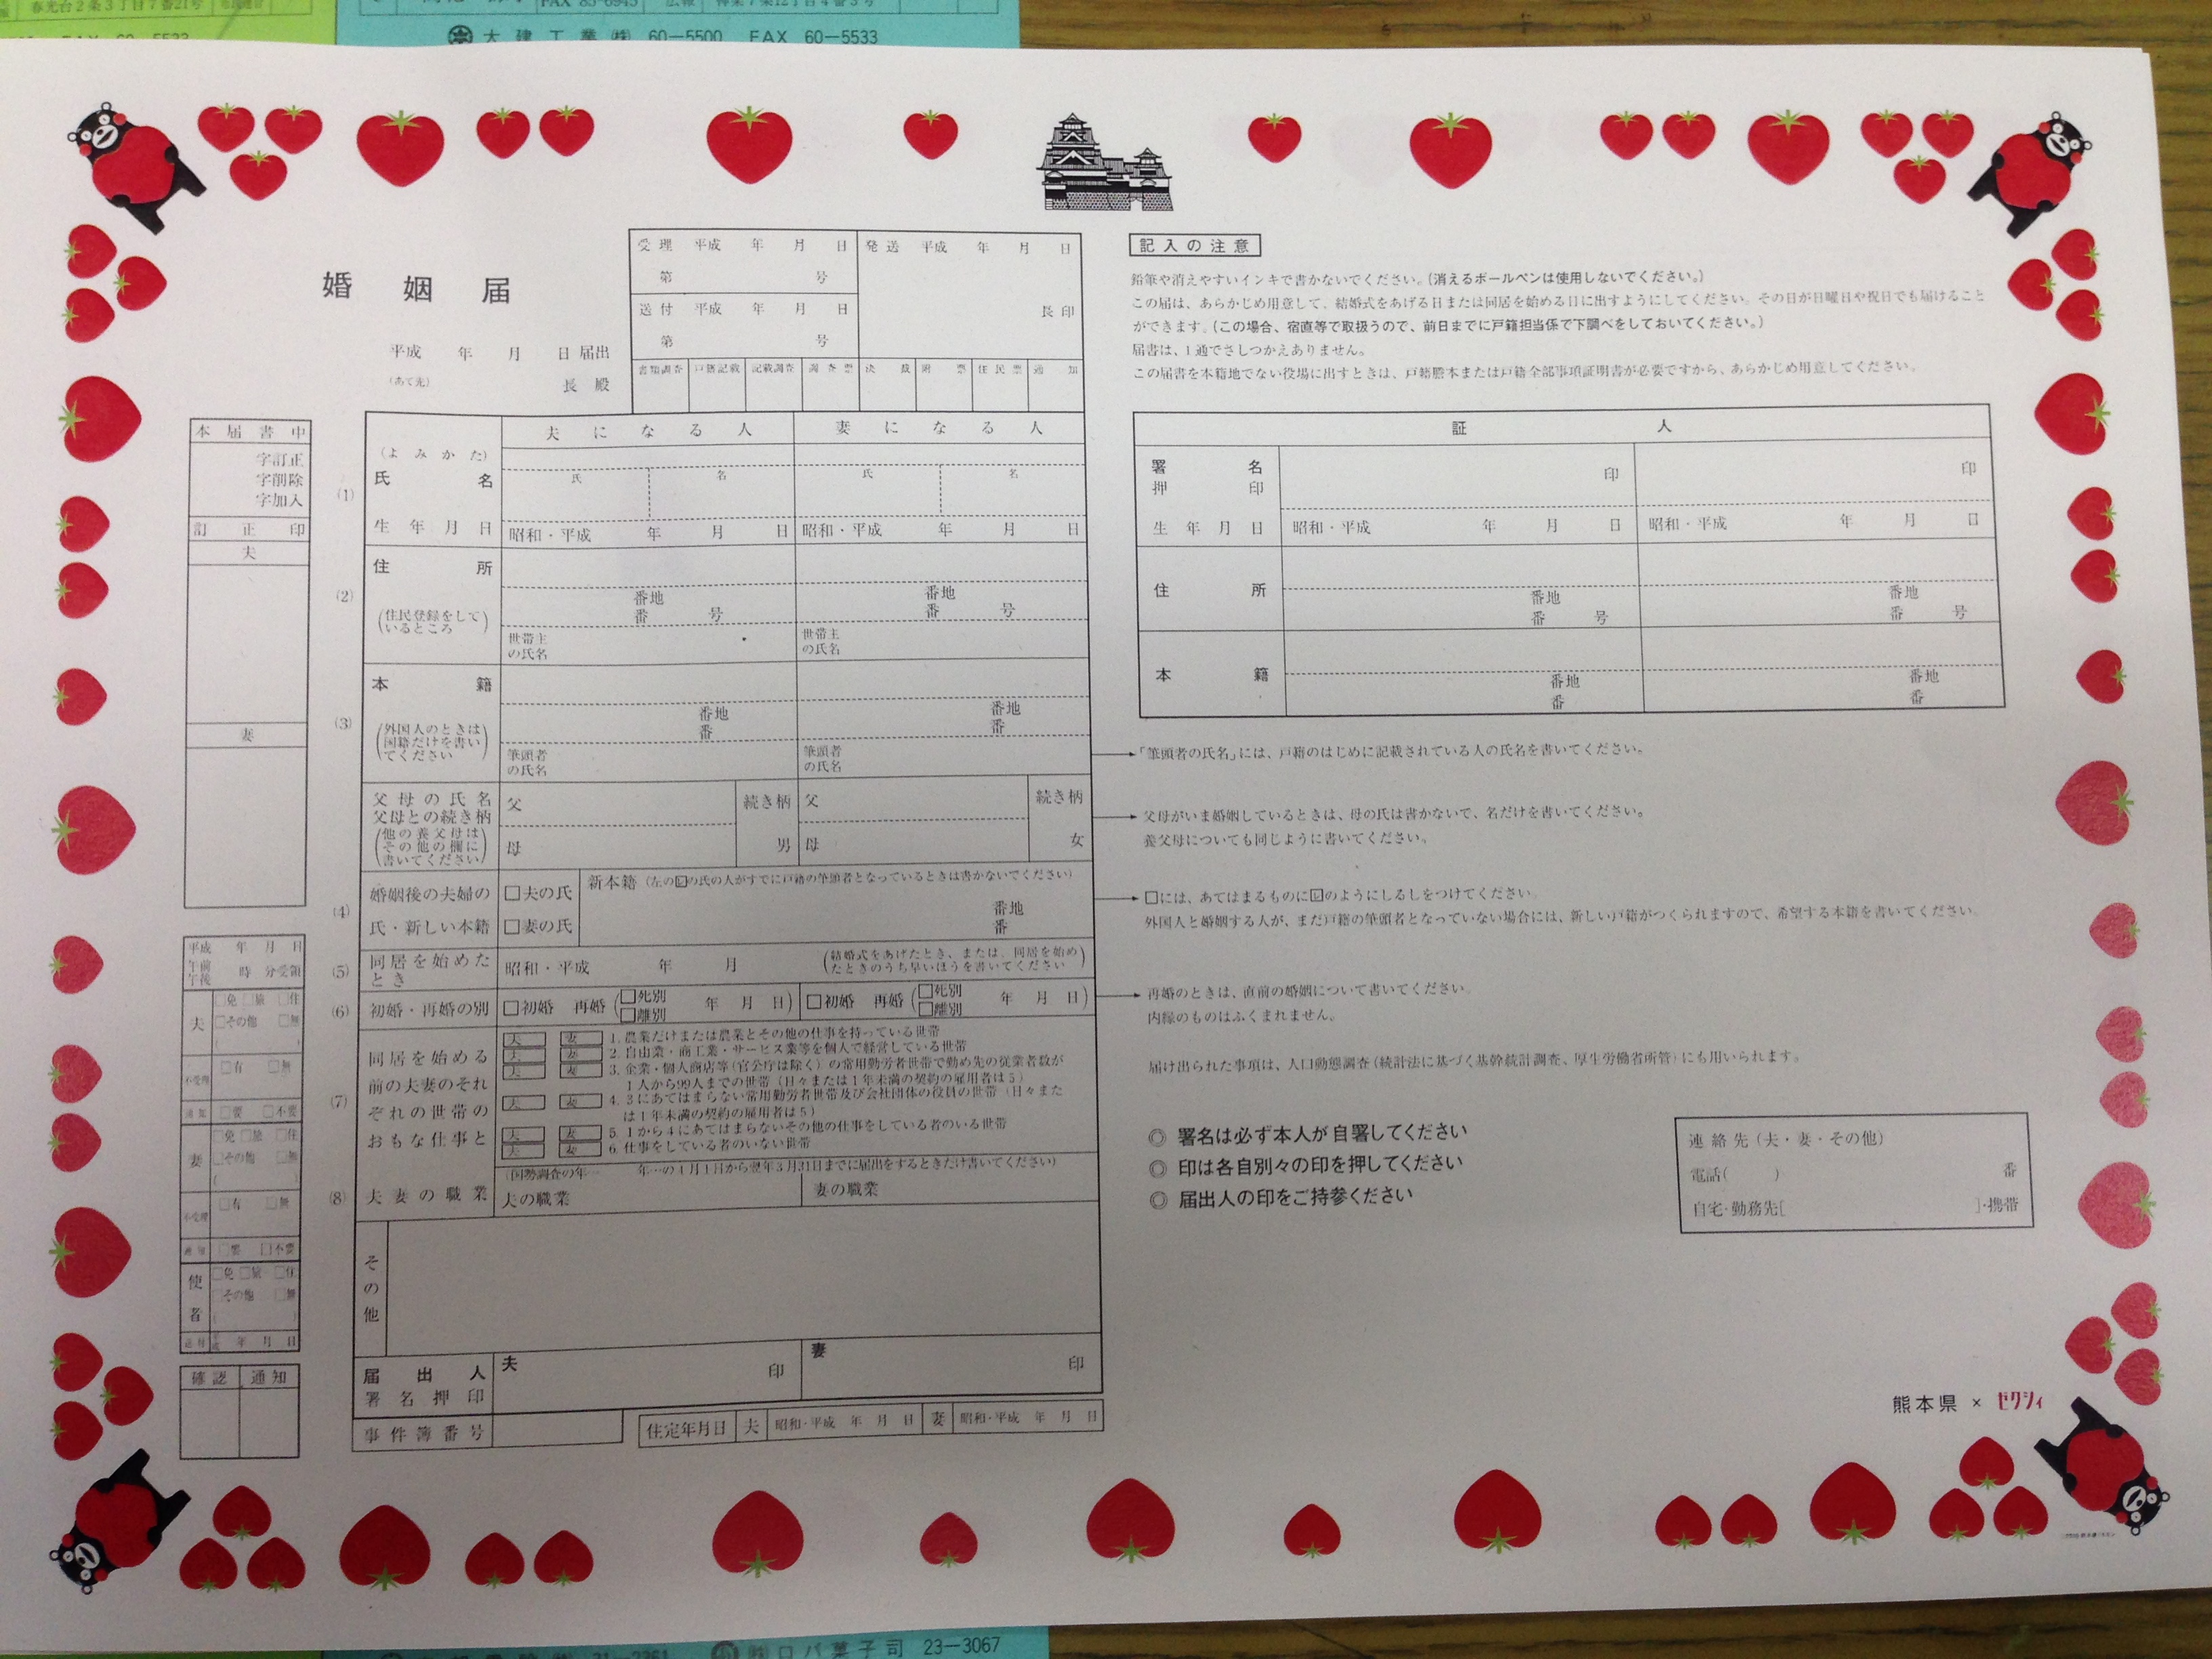 春光台2条3丁目7番21号
FAX 60-5533
FAX 85-6945 広報
大建工業㈱ 60-5500 FAX 60-5533
婚姻届
平成 年 月 日 届出
(あて先) 長 殿
受理 平成 年 月 日
第 号
送付 平成 年 月 日
第 号
発送 平成 年 月 日
長印
書類調査 戸籍記載 記載調査 調査票 決裁 附票 住民票 通知
本届書中
字訂正
字削除
字加入
訂正印
夫
妻
夫になる人 妻になる人
(1)
(よみかた)
氏名 氏 名 氏 名
生年月日 昭和・平成 年 月 日 昭和・平成 年 月 日
(2)
住所
(住民登録をしているところ)
番地 番 号 番地 番 号
世帯主の氏名 世帯主の氏名
(3)
本籍
(外国人のときは国籍だけを書いてください)
番地 番 番地 番
筆頭者の氏名 筆頭者の氏名
父母の氏名
父母との続き柄
(他の養父母はその他の欄に書いてください)
父 続き柄 父 続き柄
母 男 母 女
(4)
婚姻後の夫婦の氏・新しい本籍
□夫の氏
□妻の氏
新本籍(左の☑の氏の人がすでに戸籍の筆頭者となっているときは書かないでください)
番地
番
(5)
同居を始めたとき
昭和・平成 年 月 (結婚式をあげたとき、または、同居を始めたときのうち早いほうを書いてください)
(6)
初婚・再婚の別
□初婚 再婚(□死別 □離別 年 月 日) □初婚 再婚(□死別 □離別 年 月 日)
(7)
同居を始める前の夫妻のそれぞれの世帯のおもな仕事と
夫 妻 1. 農業だけまたは農業とその他の仕事を持っている世帯
夫 妻 2. 自由業・商工業・サービス業等を個人で経営している世帯
夫 妻 3. 企業・個人商店等(官公庁は除く)の常用勤労者世帯で勤め先の従業者数が
1人から99人までの世帯(日々または1年未満の契約の雇用者は5)
夫 妻 4. 3にあてはまらない常用勤労者世帯及び会社団体の役員の世帯(日々また
は1年未満の契約の雇用者は5)
夫 妻 5. 1から4にあてはまらないその他の仕事をしている者のいる世帯
夫 妻 6. 仕事をしている者のいない世帯
(8)
夫妻の職業
(国勢調査の年… 年…の4月1日から翌年3月31日までに届出をするときだけ書いてください)
夫の職業 妻の職業
その他
届出人
署名押印
夫 印 妻 印
事件簿番号
住定年月日 夫 昭和・平成 年 月 日 妻 昭和・平成 年 月 日
平成 年 月 日
午前 午後 時 分受領
夫 □免 □旅 □住
□その他 □無
不受理 □有 □無
通知 □要 □不要
妻 □免 □旅 □住
□その他 □無
不受理 □有 □無
通知 □要 □不要
使者 □免 □旅 □住
□その他 □無
年 月 日
確認 通知
記入の注意
鉛筆や消えやすいインキで書かないでください。(消えるボールペンは使用しないでください。)
この届は、あらかじめ用意して、結婚式をあげる日または同居を始める日に出すようにしてください。その日が日曜日や祝日でも届けること
ができます。(この場合、宿直等で取扱うので、前日までに戸籍担当係で下調べをしておいてください。)
届書は、1通でさしつかえありません。
この届書を本籍地でない役場に出すときは、戸籍謄本または戸籍全部事項証明書が必要ですから、あらかじめ用意してください。
証人
署名押印 印 印
生年月日 昭和・平成 年 月 日 昭和・平成 年 月 日
住所 番地 番 号 番地 番 号
本籍 番地 番 番地 番
「筆頭者の氏名」には、戸籍のはじめに記載されている人の氏名を書いてください。
父母がいま婚姻しているときは、母の氏は書かないで、名だけを書いてください。
養父母についても同じように書いてください。
□には、あてはまるものに☑のようにしるしをつけてください。
外国人と婚姻する人が、まだ戸籍の筆頭者となっていない場合には、新しい戸籍がつくられますので、希望する本籍を書いてください。
再婚のときは、直前の婚姻について書いてください。
内縁のものはふくまれません。
届け出られた事項は、人口動態調査(統計法に基づく基幹統計調査、厚生労働省所管)にも用いられます。
◎ 署名は必ず本人が自署してください
◎ 印は各自別々の印を押してください
◎ 届出人の印をご持参ください
連絡先(夫・妻・その他)
電話( ) 番
自宅・勤務先[ ]・携帯
熊本県 × ゼクシィ
㈱ロバ菓子司 23-3067